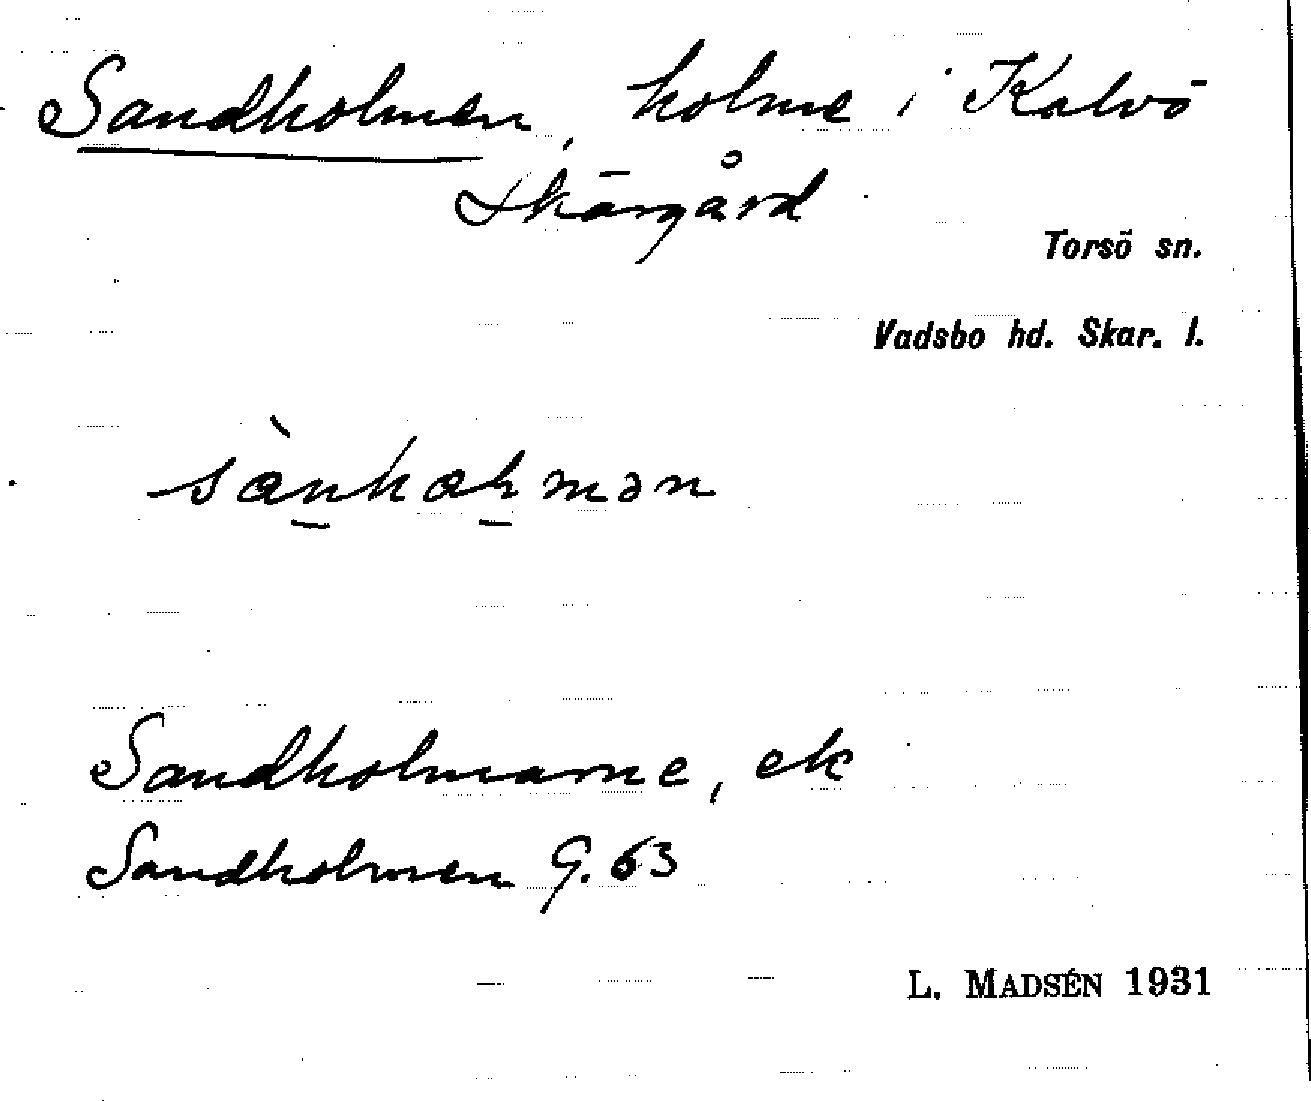 Sandholmen, holme i Kalvö
skärgård
Torsö sn.
Vadsbo hd. Skar. l.
Sandholmarne, ek
Sandholmen G. 63
L. MADSÉN 1931